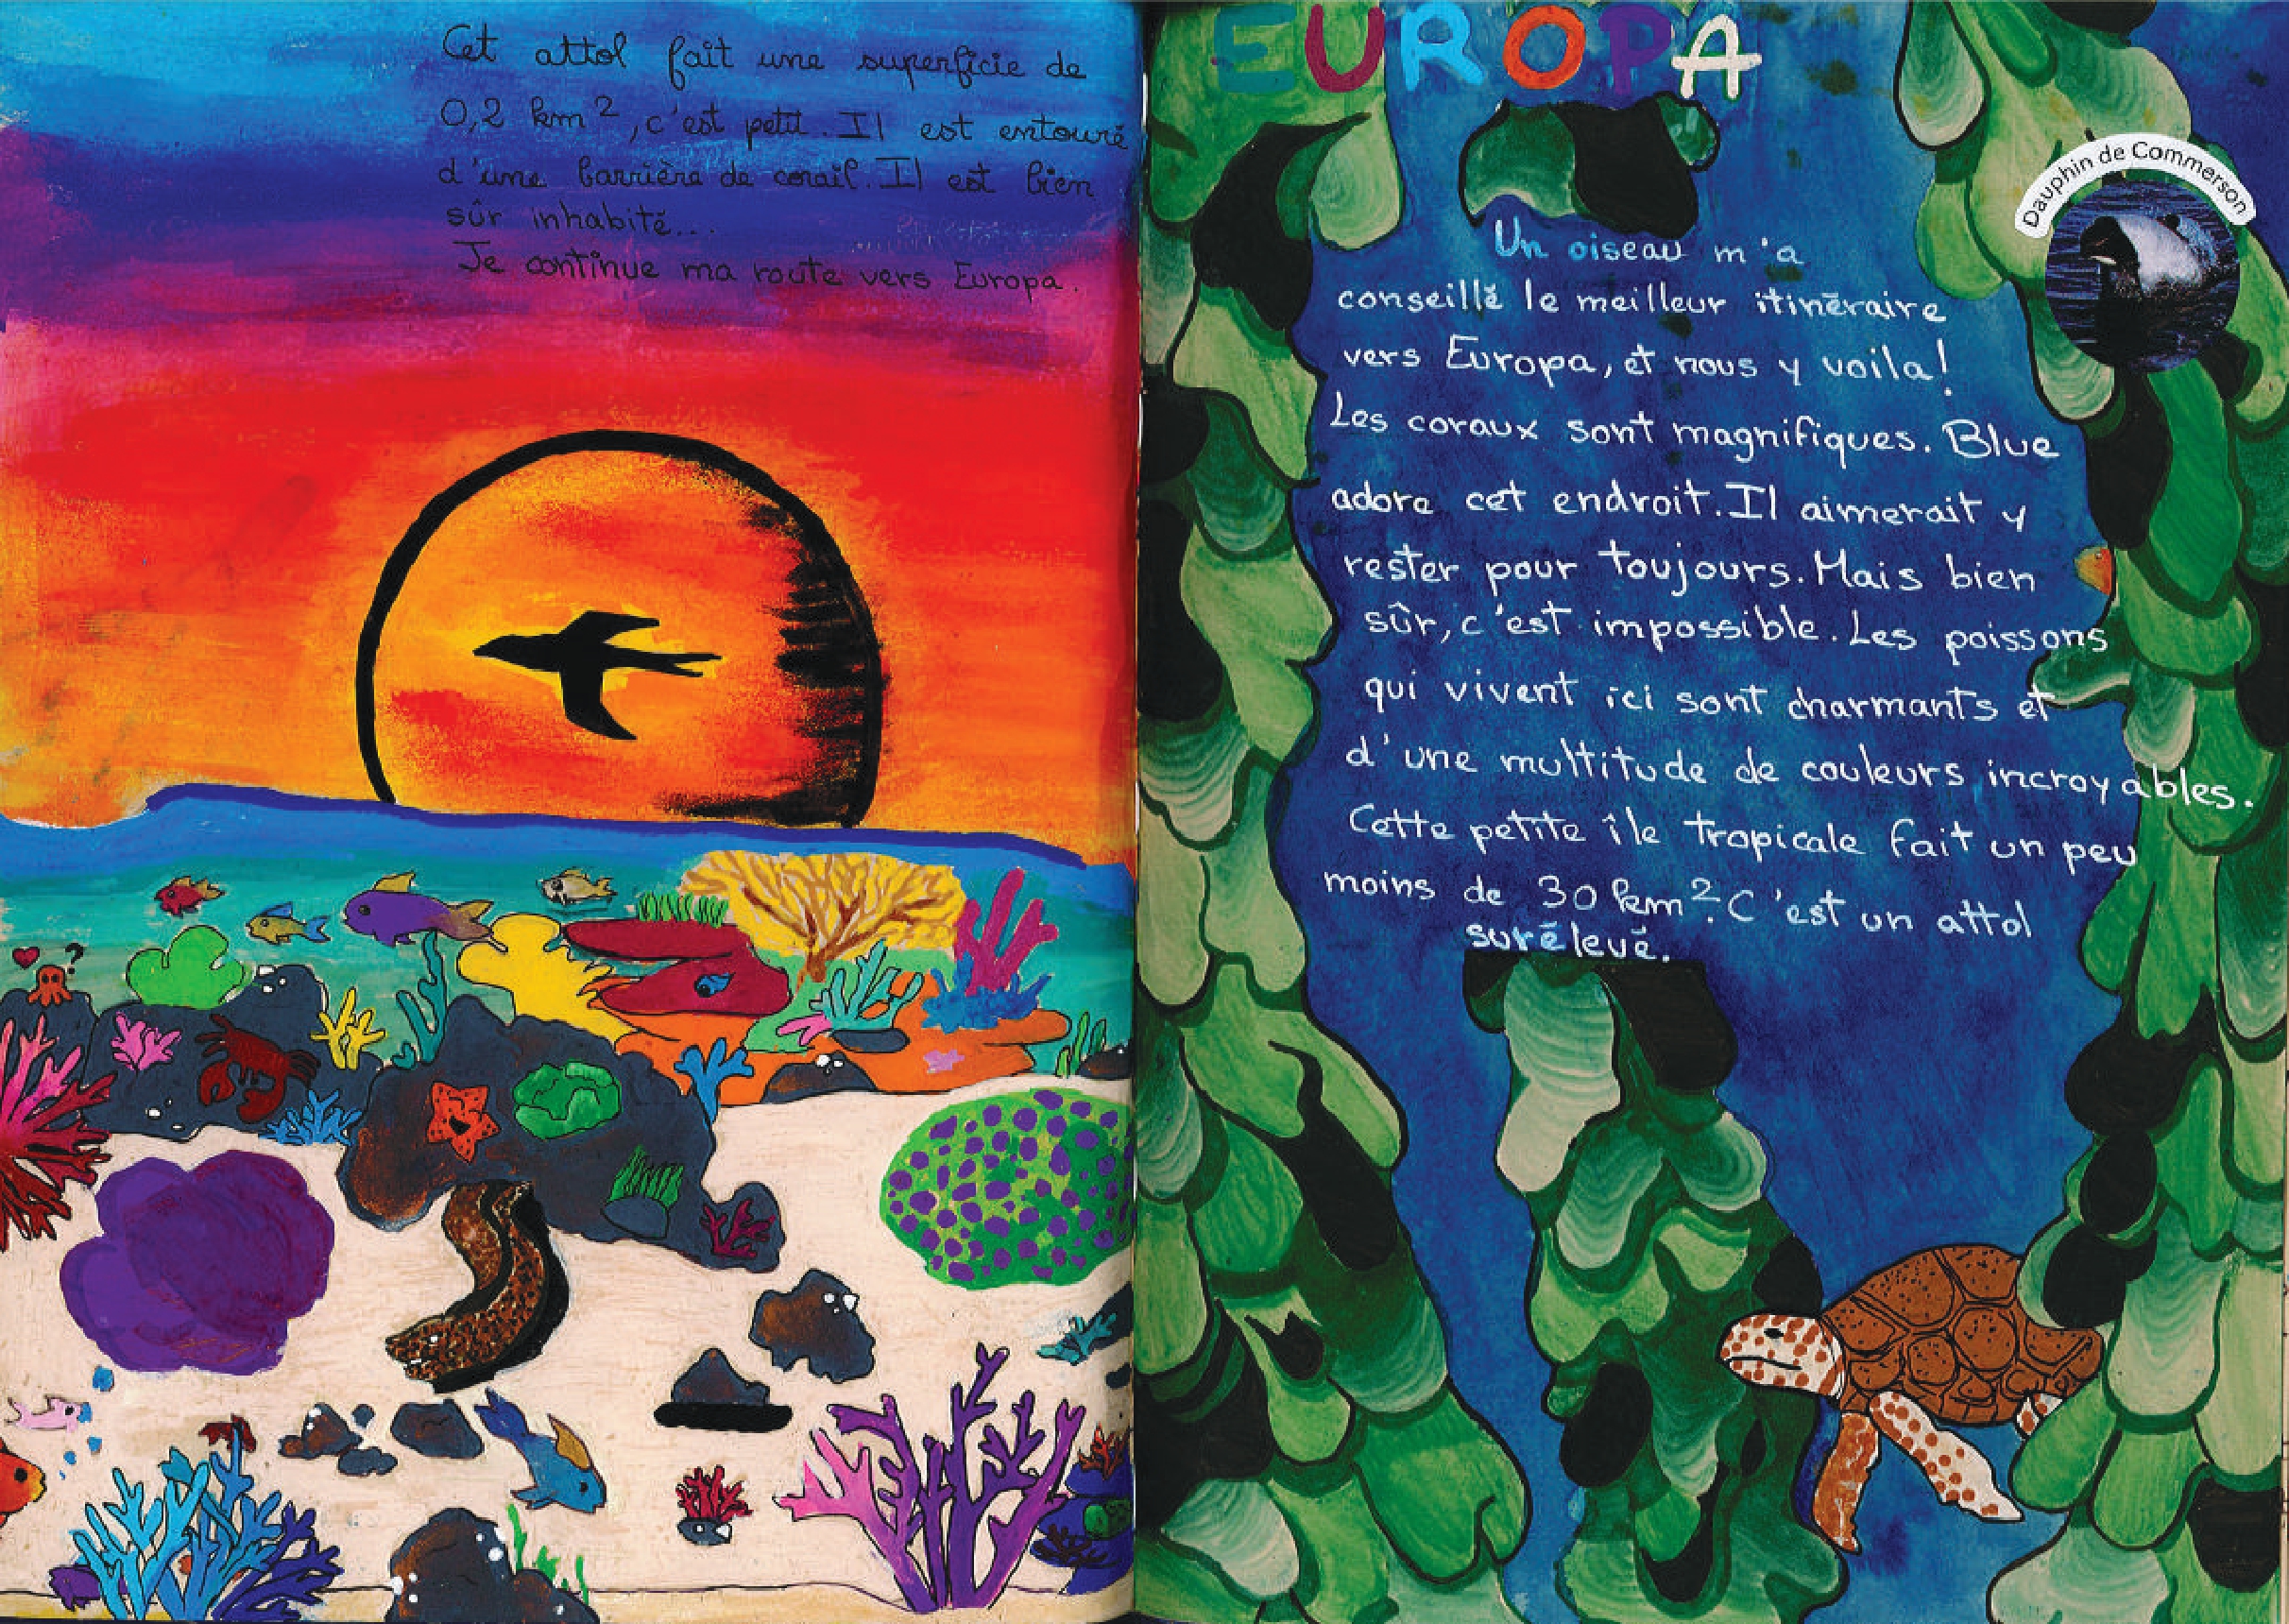 Cet attol fait une superficie de
0,2 km², c'est petit. Il est entouré
d'une barrière de corail. Il est bien
sûr inhabité...
Je continue ma route vers Europa.
EUROPA
Dauphin de Commerson
Un oiseau m'a
conseillé le meilleur itinéraire
vers Europa, et nous y voila!
Les coraux sont magnifiques. Blue
adore cet endroit. Il aimerait y
rester pour toujours. Mais bien
sûr, c'est impossible. Les poissons
qui vivent ici sont charmants et
d'une multitude de couleurs incroyables.
Cette petite île tropicale fait un peu
moins de 30 km². C'est un attol
surélevé.
?